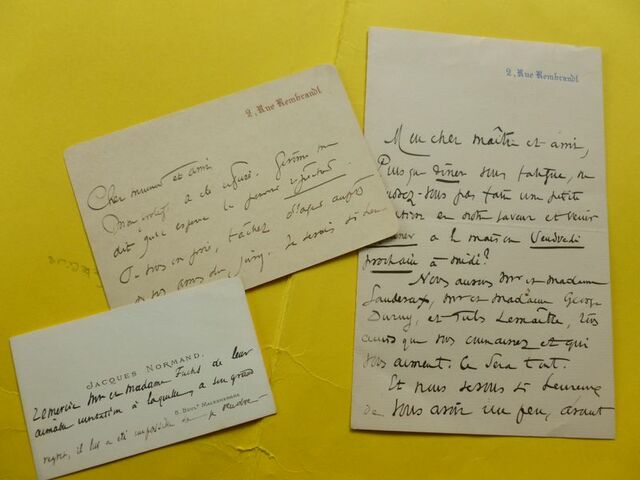 2, Rue Rembrandt
Cher et ami
Mon a été refusé. Gérôme m'a
dit qu'il espère le
Je vous en prie, tâchez d'agir auprès
de vos amis du jury. Je serais si heu
JACQUES NORMAND.
remercie Mr et madame Fuchs de leur
aimable invitation à laquelle, a son grand
5, BOULD MALESHERBES
regret, il lui a été impossible de se rendre
2, Rue Rembrandt
Mon cher maître et ami,
Puisque dîner vous fatigue, ne
voulez-vous pas faire une petite
en notre faveur et venir
à la maison Vendredi
prochain à midi?
Nous aurons Mr et madame
Ganderax, Mr et madame George
Duruy, et Jules Lemaître, tous
amis que vous connaissez et qui
vous aiment. Ce sera tout.
Et nous serons si heureux
de vous avoir un peu, avant